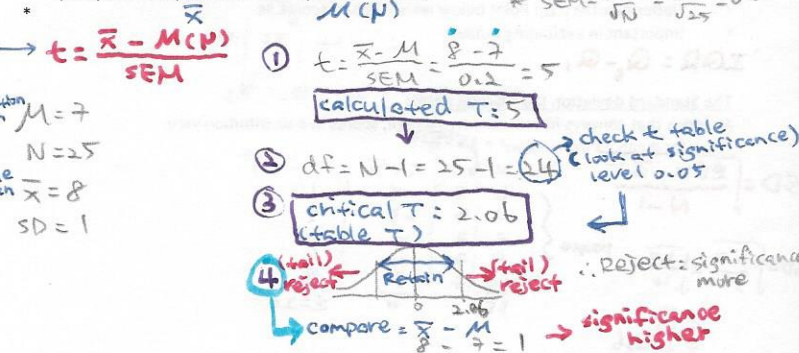 *
x̄
M(N)
* SEM = /√N /√25 = 0
→ t = x̄ - M(N) / SEM
① t = x̄ - M / SEM = 8 - 7 / 0.2 = 5
calculated T: 5
M = 7
N = 25
x̄ = 8
SD = 1
② df = N-1 = 25-1 = 24
→ check t table
(look at significance)
level 0.05
③ critical T: 2.06
(table T)
4 (tail) reject
Retain
(tail) reject
0
2.06
∴ Reject: significanc
more
→ compare = x̄ - M
8 - 7 = 1
→ significance
higher